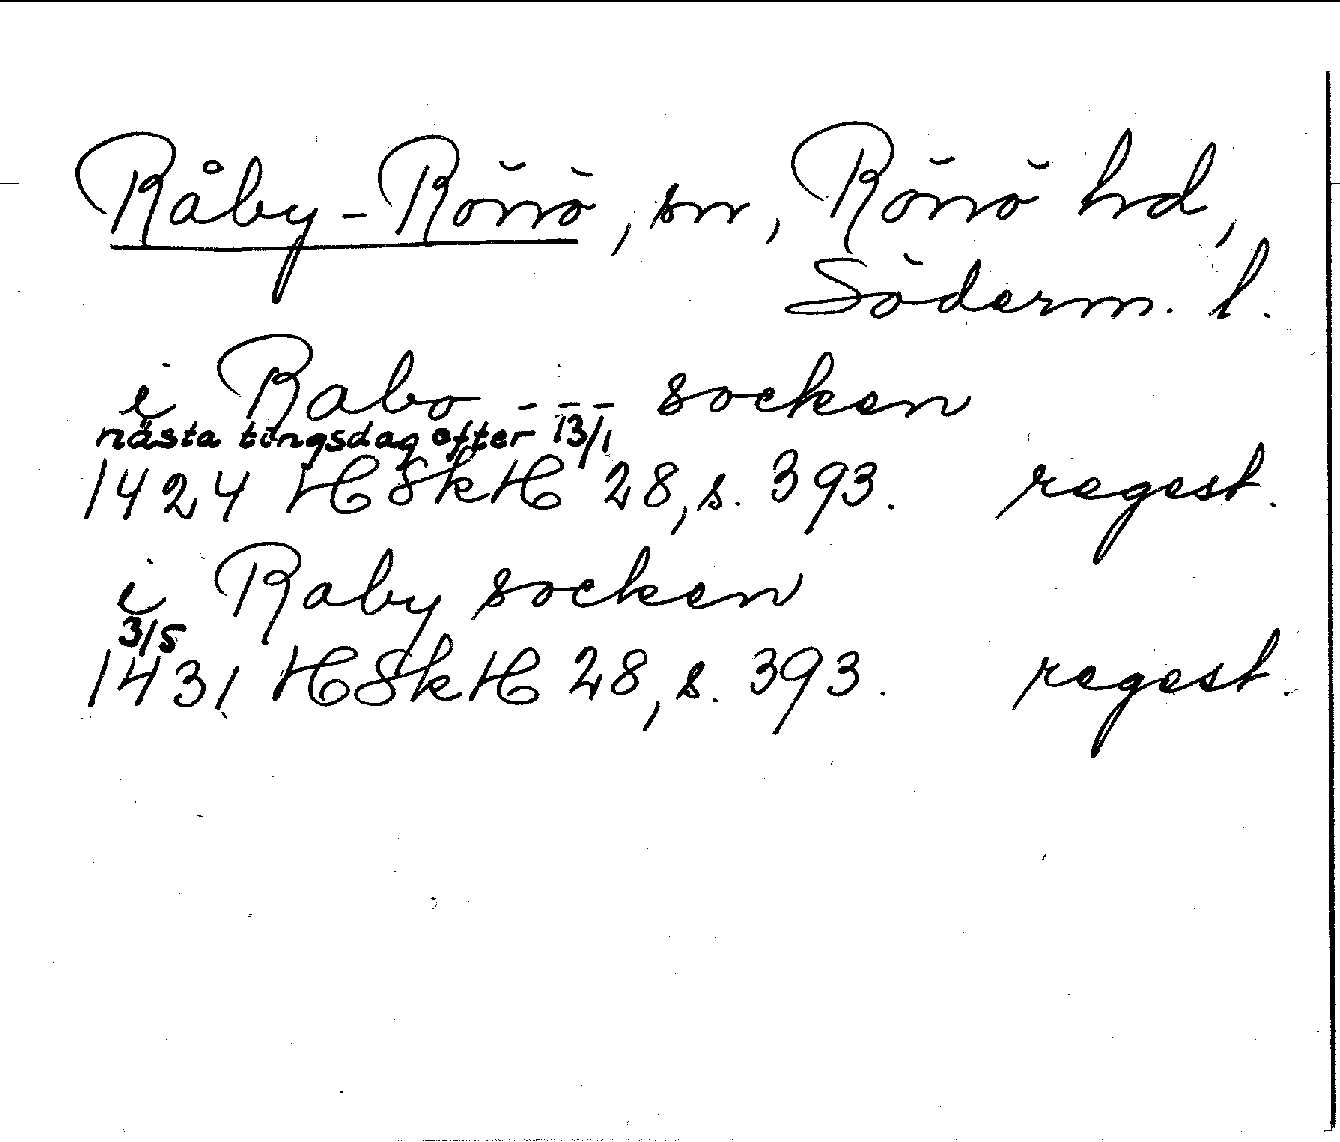 Råby-Rönö, sn, Rönö hd,
Söderm. l.
i Rabo --- socken
nästa tingsdag efter 13/1
1424 HSkH 28, s. 393. regest.
i Raby socken
3/5
1431 HSkH 28, s. 393. regest.